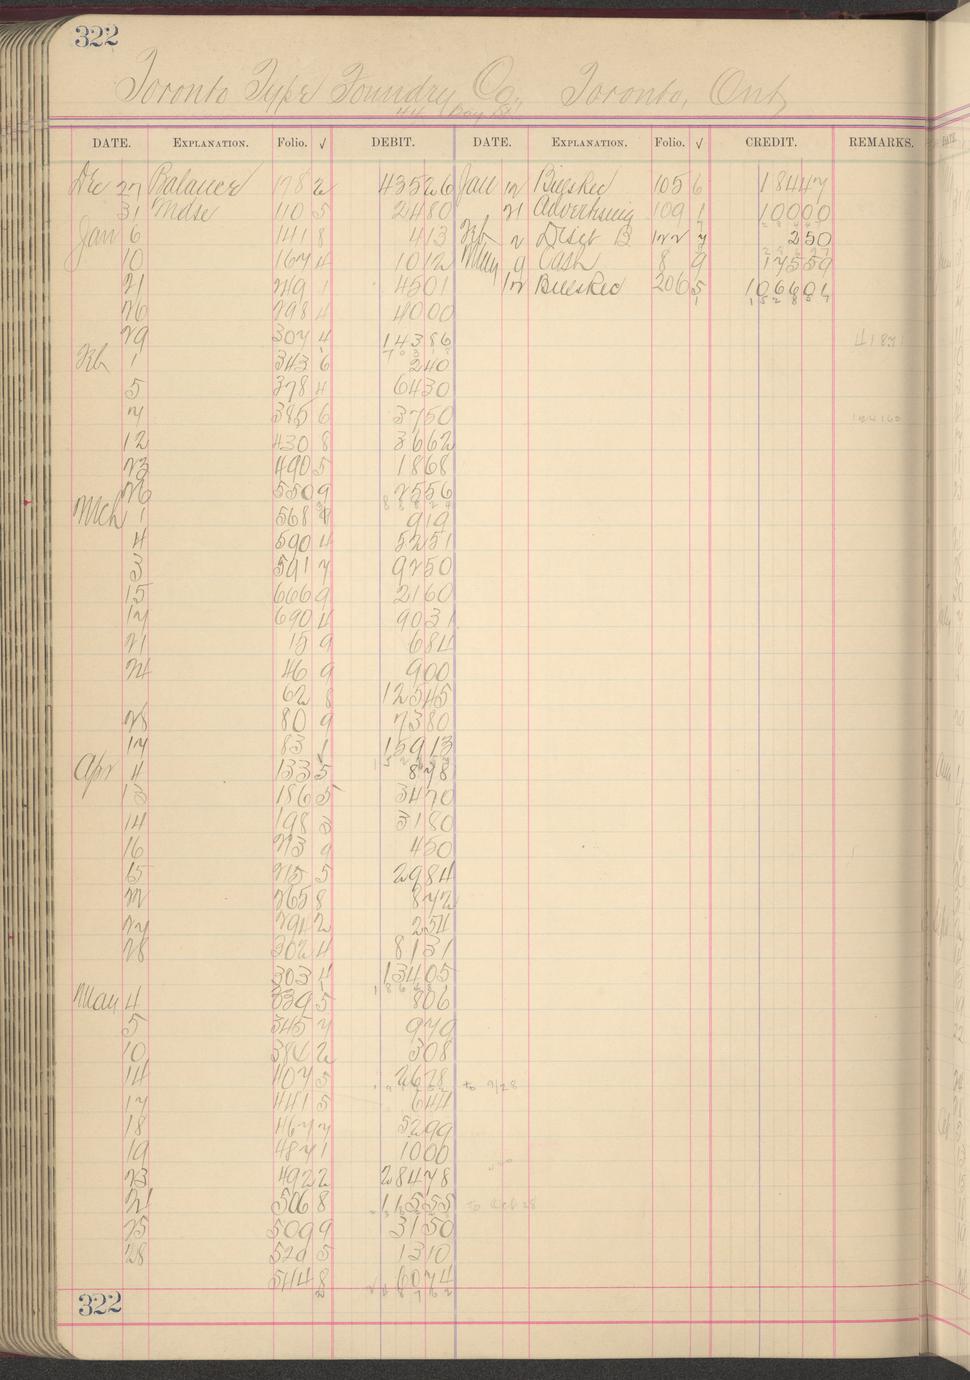 322
Toronto Type Foundry Co., Toronto, Ont
44 Bay St.
DATE. EXPLANATION. Folio. √ DEBIT. DATE. EXPLANATION. Folio. √ CREDIT. REMARKS.
Dec 27 Balance 198 2 43526 Jan 12 Bills Rec 105 6 18447
31 Mdse 110 5 2480 21 Advertising 109 1 10000
Jan 6 141 8 413 Feb 2 Disct B 122 7 250
10 164 4 1012 May 9 Cash 8 9 17559
21 249 1 4501 12 Bills Rec 206 5 106601
26 298 4 4000
29 307 4 14386
Feb 1 343 6 240
5 378 4 6430
7 385 6 3750
12 430 8 3662
23 490 5 1868
26 550 9 2556
Mch 1 568 919
4 590 4 5251
3 591 7 9250
15 666 9 2160
17 690 4 9031
21 15 9 684
24 46 9 900
62 8 12545
28 80 9 7380
17 83 1 15913
Apr 4 133 5 878
13 186 5 3470
14 198 3 3180
16 273 9 450
15 275 5 2984
22 265 8 872
27 291 2 254
28 302 4 8131
303 4 13405
May 4 339 5 806
5 345 7 970
10 386 2 308
14 407 5 2628 to 9/28
17 441 5 644
18 467 7 5299
19 487 1 1000
23 492 2 28478
21 506 8 11555 to Oct 28
25 509 9 3150
28 520 5 1310
544 8 6074
322